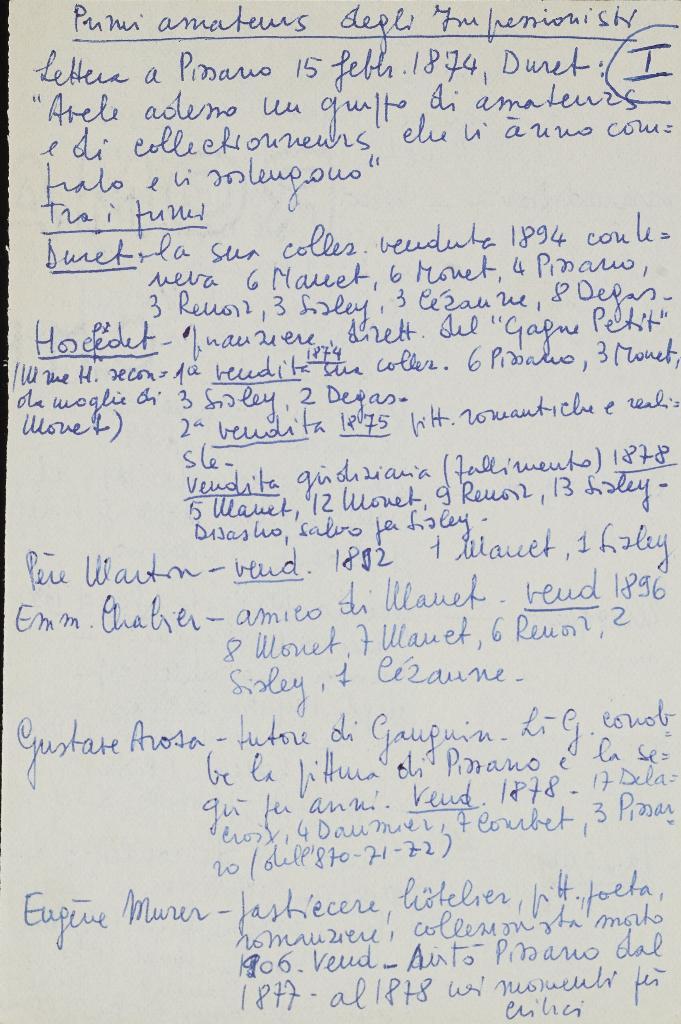 Primi amateurs degli Impressionisti
I
Lettera a Pissarro 15 febbr. 1874, Duret:
"Avete adesso un gruppo di amateurs
e di collectionneurs che vi ànno com=
prato e vi sostengono"
Tra i primi
Duret - la sua collez. venduta 1894 conte=
neva 6 Manet, 6 Monet, 4 Pissarro,
3 Renoir, 3 Sisley, 3 Cézanne, 8 Degas -
Hoschedet - finanziere, dirett. del "Gagne Petit"
(Mme H. secon= 1a vendita 1874 sua collez. 6 Pissarro, 3 Monet,
da moglie di 3 Sisley, 2 Degas -
Monet) 2a vendita 1875 pitt. romantiche e reali=
ste -
Vendita giudiziaria (fallimento) 1878
5 Manet, 12 Monet, 9 Renoir, 13 Sisley -
Disastro, salvo per Sisley -
Père Martin - vend. 1892 1 Manet, 1 Sisley
Emm. Chabrier - amico di Manet - vend 1896
8 Monet, 7 Manet, 6 Renoir, 2
Sisley, 1 Cézanne -
Gustave Arosa - tutore di Gauguin - Lì G. conob=
be la pittura di Pissarro e la se=
guì per anni. Vend. 1878 - 17 Dela=
croix, 4 Daumier, 7 Courbet, 3 Pissar
ro (dell'870-71-72)
Eugène Murer - pasticcere, hôtelier, pitt., poeta,
romanziere, collezionista morto
1906. Vend - Aiutò Pissarro dal
1877 - al 1878 nei momenti più
critici